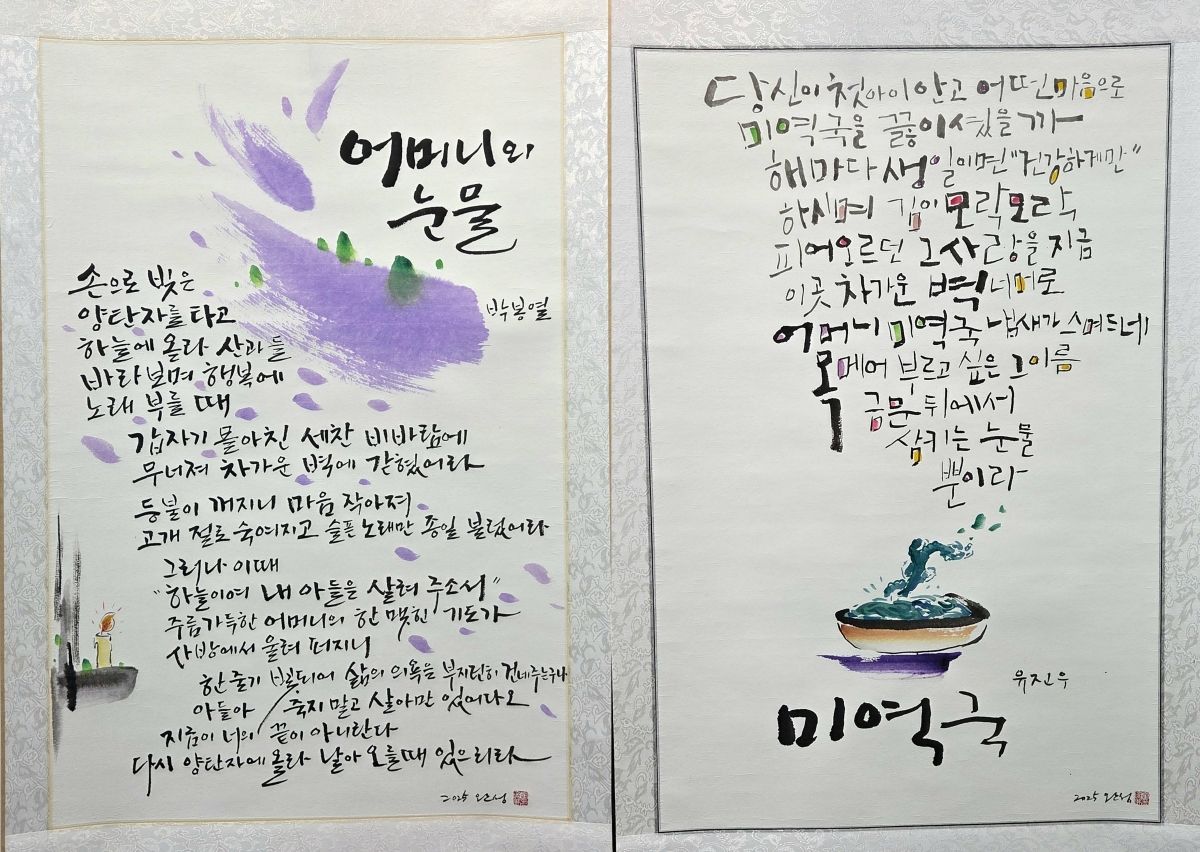 어머니의
눈물
박봉열
손으로 빚은
양탄자를 타고
하늘에 올라 산과 들
바라보며 행복에
노래 부를 때
갑자기 몰아친 세찬 비바람에
무너져 차가운 벽에 갇혔어라
등불이 꺼지니 마음 작아져
고개 절로 숙여지고 슬픈 노래만 종일 불렀어라
그러나 이때
"하늘이여 내 아들을 살려 주소서"
주름 가득한 어머니의 한 맺힌 기도가
사방에서 울려 퍼지니
한 줄기 빛 되어 삶의 의욕을 부지런히 건네주는구나
아들아 죽지 말고 살아만 있어다오
지금이 너의 끝이 아니란다
다시 양탄자에 올라 날아 오를 때 있으리라
2025
당신이 첫아이 안고 어떤 마음으로
미역국을 끓이셨을까
해마다 생일이면 "건강하게만"
하시며 김이 모락모락
피어오르던 그 사랑을 지금
이곳 차가운 벽 너머로
어머니 미역국 냄새가 스며드네
목메어 부르고 싶은 그 이름
급문 뒤에서
삼키는 눈물
뿐이라
유진우
미역국
2025